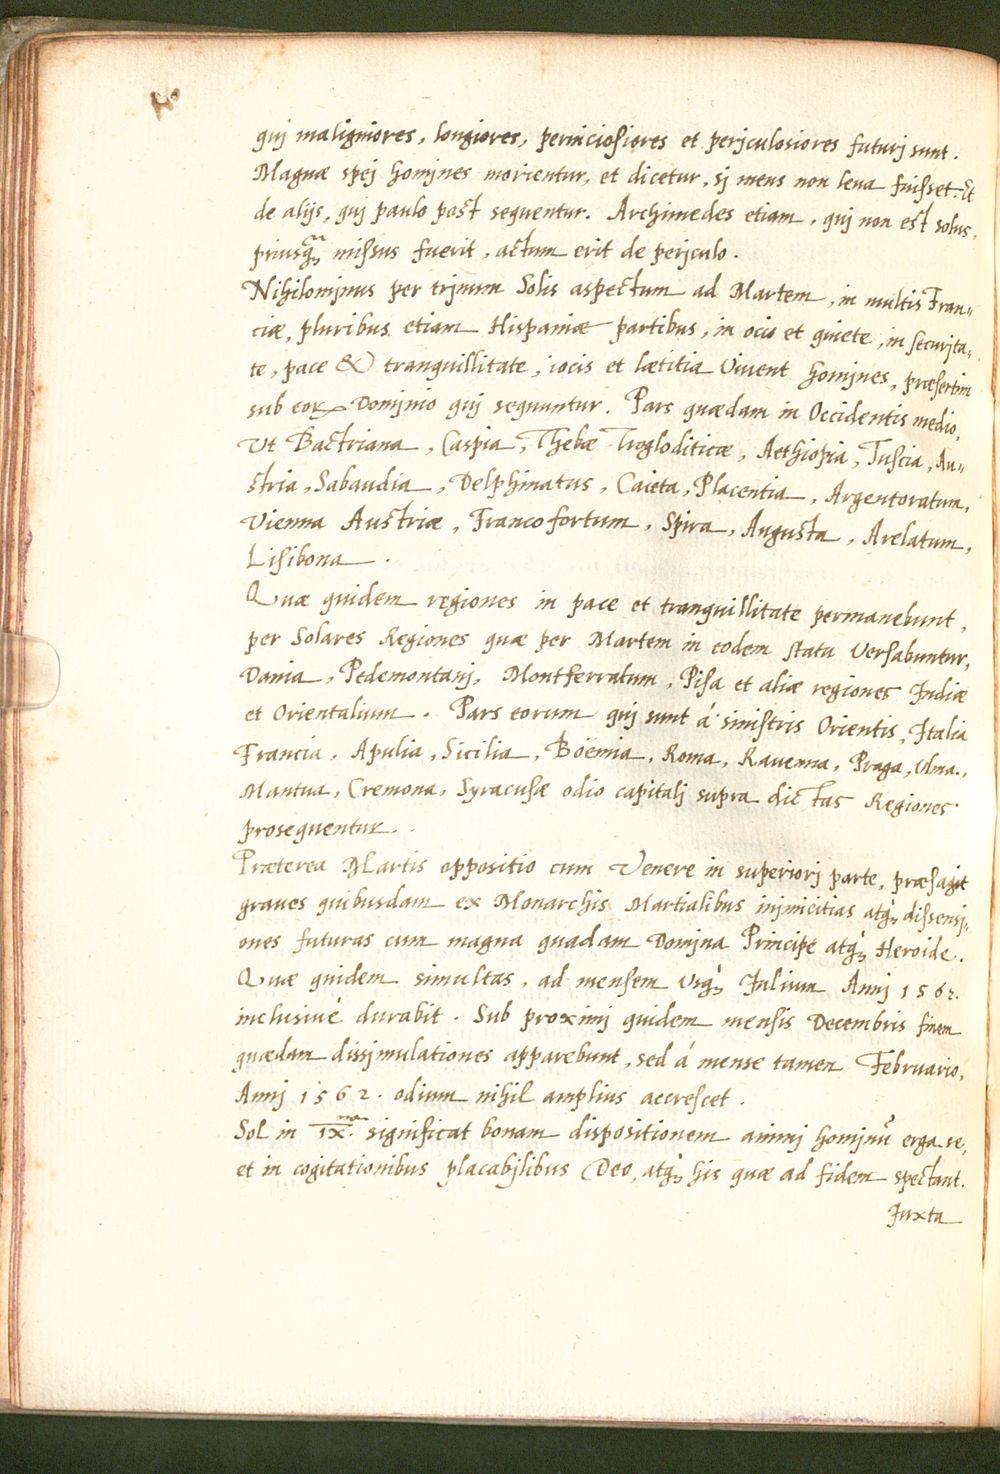 quj maligniores, longiores, perniciosiores et perjculosiores futurj sunt.
Magnæ spej homjnes morientur, et dicetur, sj mens non leua fuisset. Et
de alijs, quj paulo post sequentur. Archimedes etiam, quj non est solus,
priusq̃ꝫ missus fuerit, actum erit de perjculo.
Nihilomjnus per trjnum Solis aspectum ad Martem, in multis Fran„
ciæ, pluribus etiam Hispaniæ partibus, in ocio et quiete, in securjta„
te, pace & tranquillitate, iocis et lætitia Viuent homjnes, præsertim
sub eoꝝ Domjnio quj sequuntur. Pars quædam in Occidentis medio,
Vt Bactriana, Caspia, Thebæ Trogloditicæ, Aethiopia, Tuscia, Au„
stria, Sabaudia, Delphinatus, Caieta, Placentia, Argentoratum,
Vienna Austriæ, Francofortum, Spira, Augusta, Arelatum,
Lisibona.
Quæ quidem regiones in pace et tranquillitate permanebunt,
per Solares Regiones quæ per Martem in eodem statu Versabuntur,
Dania, Pedemontanj, Montferratum, Pisa et aliæ regiones Indiæ
et Orientalium. Pars eorum quj sunt á sinistris Orientis, Italia
Francia, Apulia, Sicilia, Boëmia, Roma, Rauenna, Praga, Vlma,
Mantua, Cremona, Syracusæ odio capitalj supra dictas Regiones
prosequentur.
Præterea Martis oppositio cum Venere in superiorj parte, præsagit
graues quibusdam ex Monarchis Martialibus injmicitias atq̀ꝫ dissensj„
ones futuras cum magna quadam Domjna Principe atq̀ꝫ Heroide.
Quæ quidem simultas, ad mensem Vsq̀ꝫ Julium Annj 1562.
inclusiué durabit. Sub proximj quidem mensis Decembris finem
quædam dissjmulationes apparebunt, sed á mense tamen Februario,
Annj 1562. odium nihil amplius accrescet.
Sol in IX.ᵐᵃ significat bonam dispositionem animj homjnũ erga se,
et in cogitationibus placabjlibus Deo, atq̀ꝫ his quæ ad fidem spectant.
Juxta